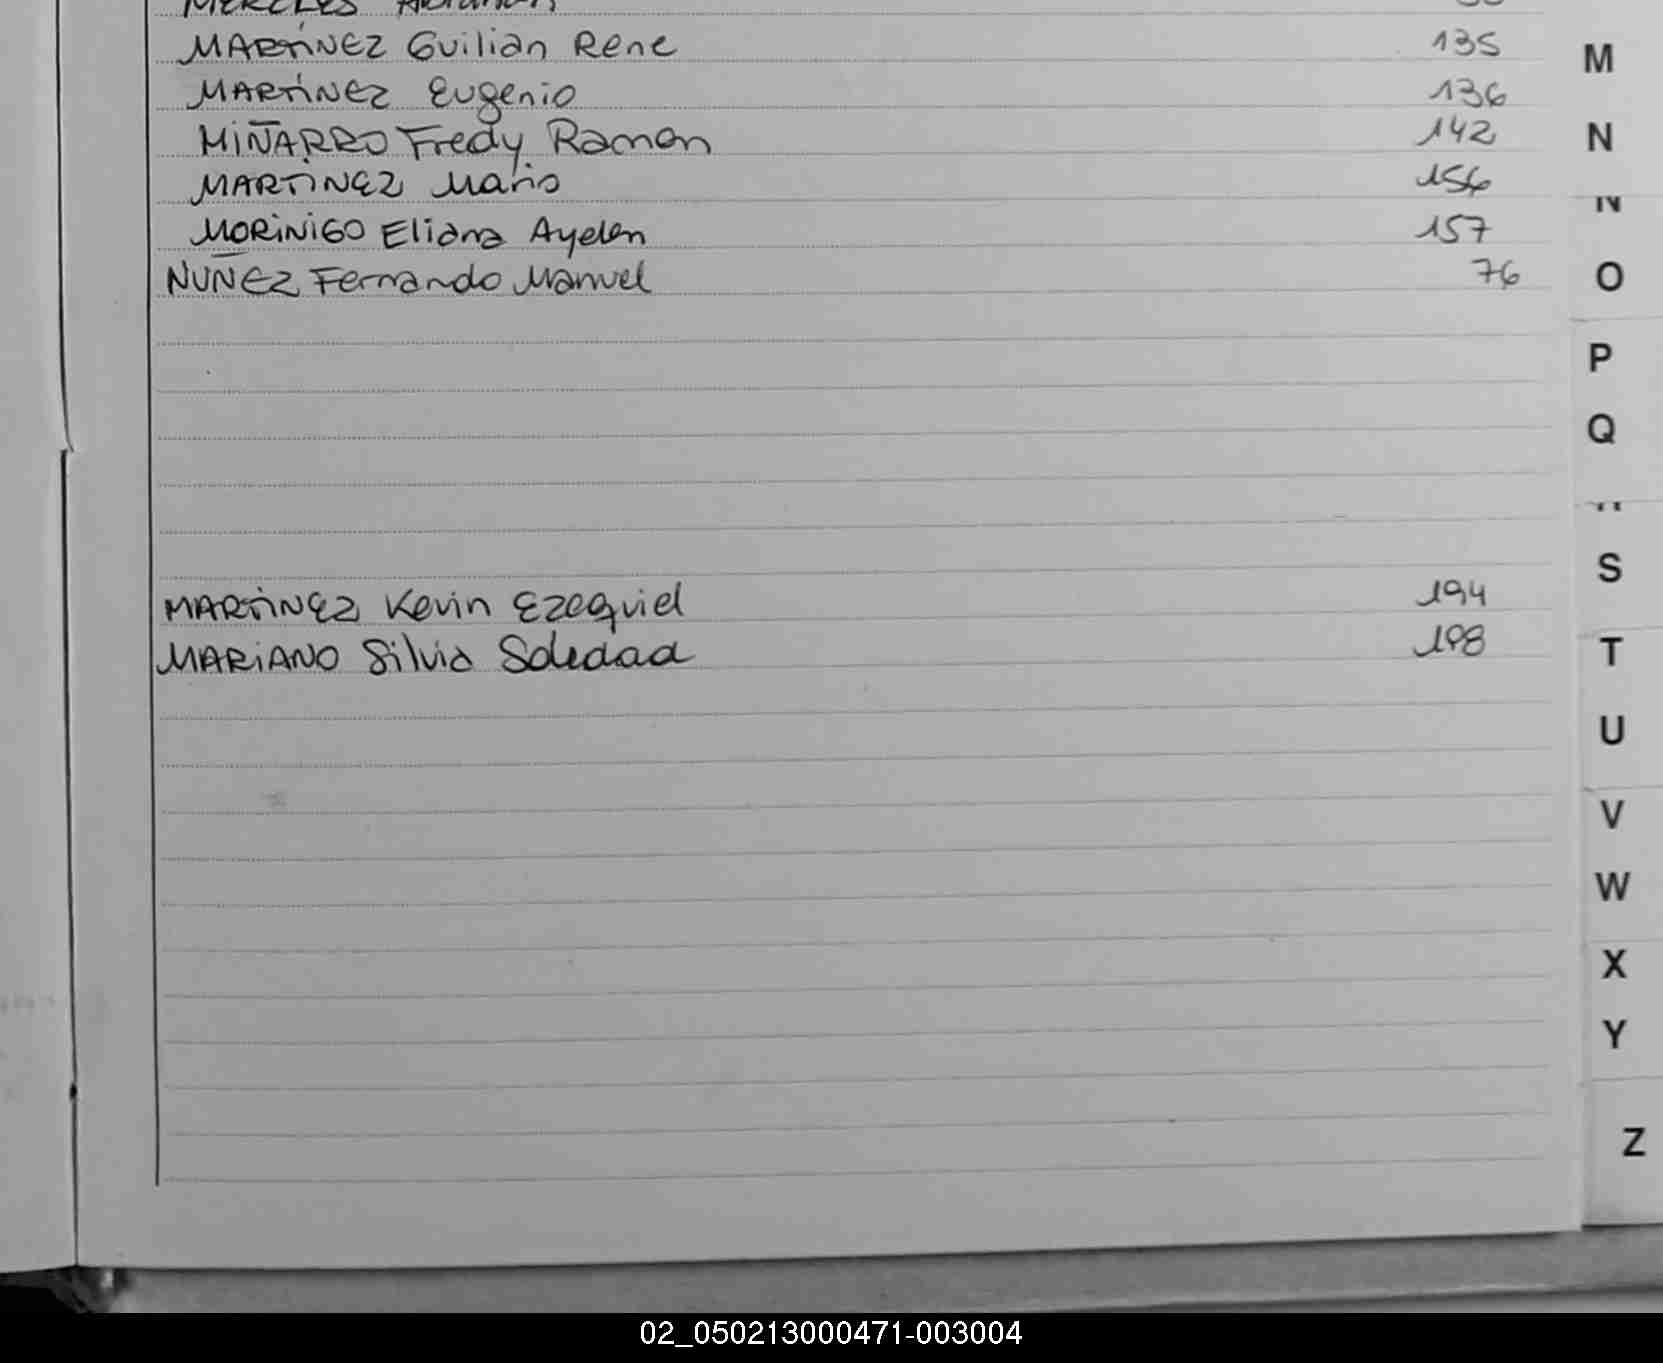 MARTINEZ Guilian Rene 135 M
MARTINEZ Eugenio 136
MIÑARRO Fredy Ramon 142 N
MARTINEZ Mario 156
MORINIGO Eliana Ayelen 157
NUÑEZ Fernando Manuel 76 O
P
Q
S
MARTINEZ Kevin Ezequiel 194
MARIANO Silvia Soledad 198 T
U
V
W
X
Y
Z
02_050213000471-003004